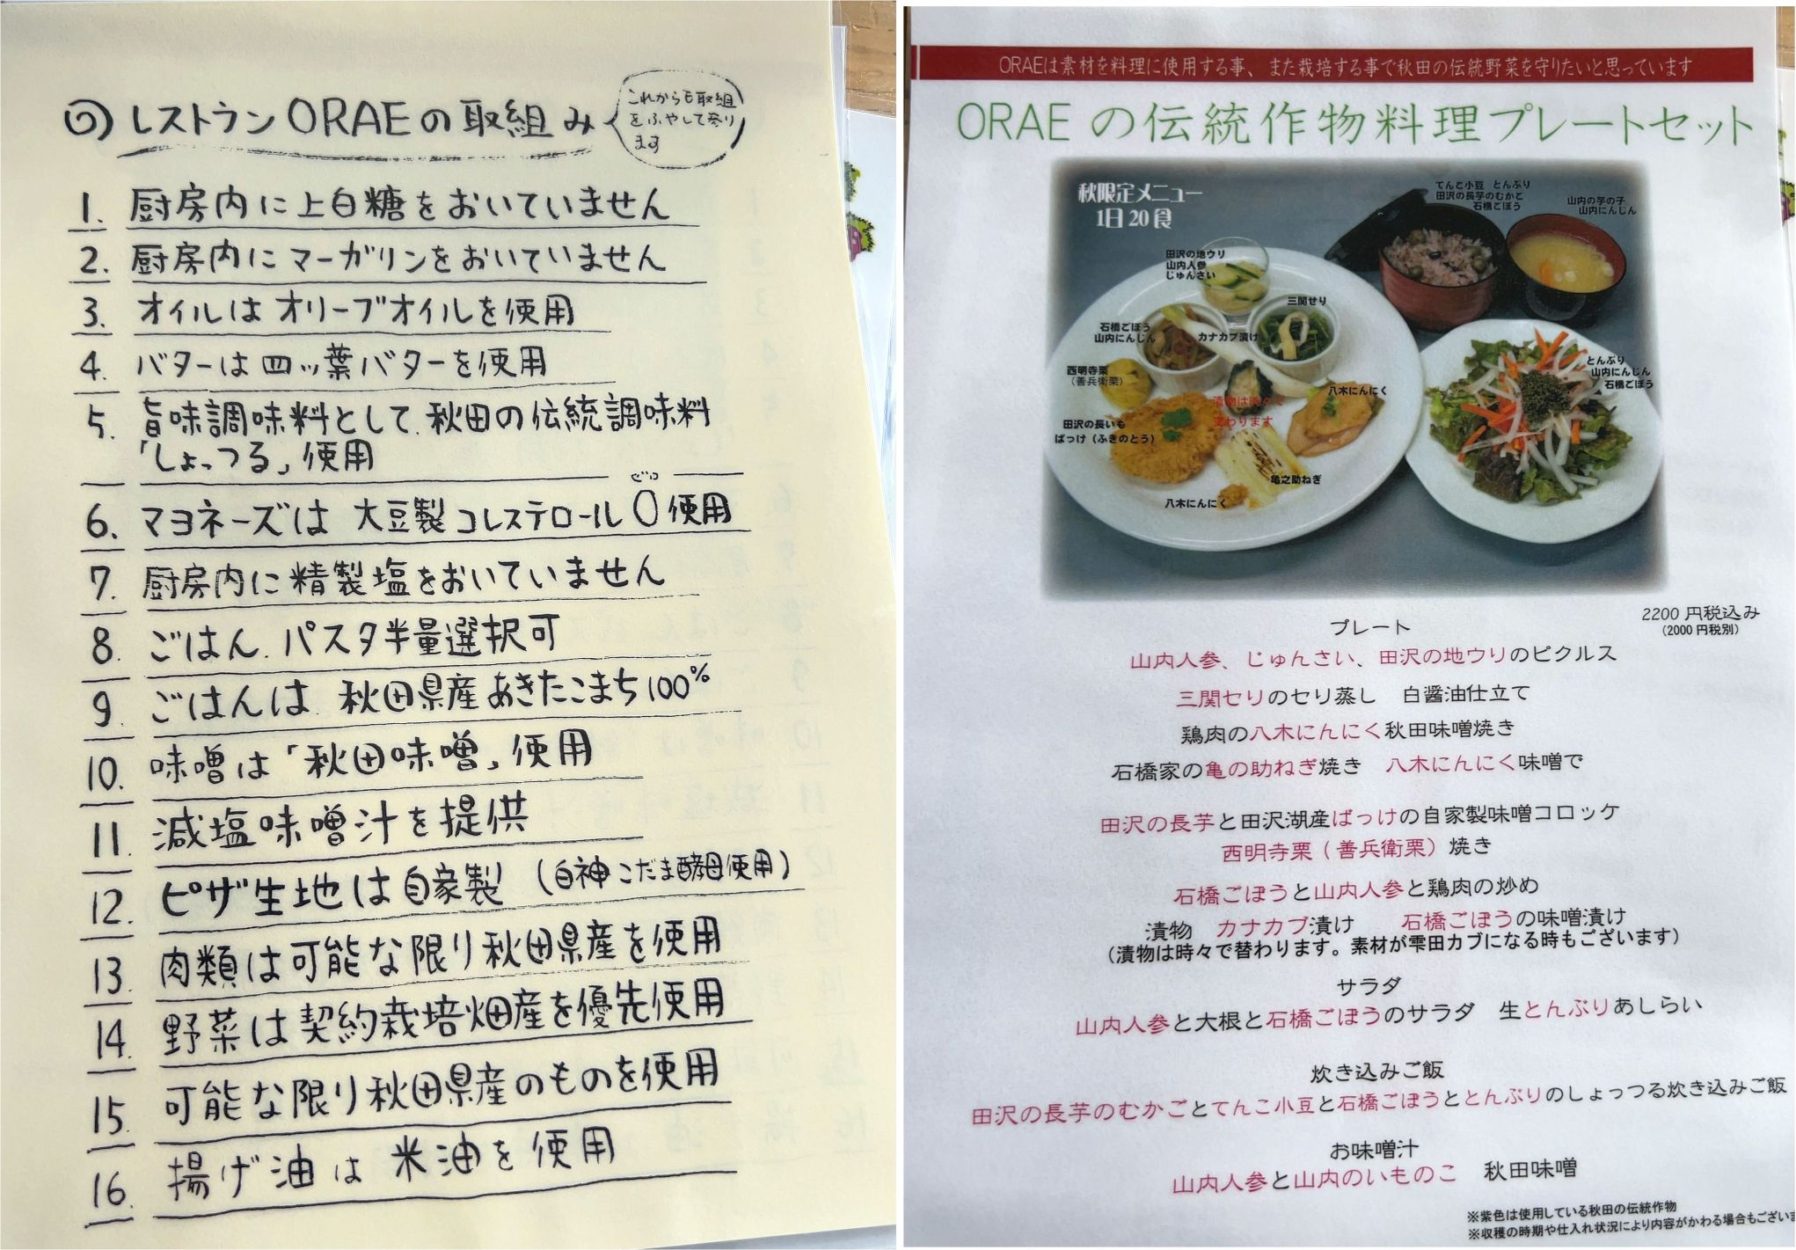 レストランORAEの取組み
これからも取組
をふやして参り
ます
1. 厨房内に上白糖をおいていません
2. 厨房内にマーガリンをおいていません
3. オイルはオリーブオイルを使用
4. バターは四ッ葉バターを使用
5. 旨味調味料として、秋田の伝統調味料
「しょっつる」使用
6. マヨネーズは大豆製コレステロール0使用
ゼロ
7. 厨房内に精製塩をおいていません
8. ごはん、パスタ半量選択可
9. ごはんは、秋田県産あきたこまち100%
10. 味噌は「秋田味噌」使用
11. 減塩味噌汁を提供
12. ピザ生地は自家製（白神こだま酵母使用）
13. 肉類は可能な限り秋田県産を使用
14. 野菜は契約栽培畑産を優先使用
15. 可能な限り秋田県産のものを使用
16. 揚げ油は米油を使用
ORAEは素材を料理に使用する事、また栽培する事で秋田の伝統野菜を守りたいと思っています
ORAEの伝統作物料理プレートセット
秋限定メニュー
1日20食
てんこ小豆 とんぶり
田沢の長芋のむかご
石橋ごぼう
山内の芋の子
山内にんじん
田沢の地ウリ
山内人参
じゅんさい
三関せり
石橋ごぼう
山内にんじん
カナカブ漬け
西明寺栗
（善兵衛栗）
八木にんにく
漬物は時々で
変わります
とんぶり
山内にんじん
石橋ごぼう
田沢の長いも
ばっけ（ふきのとう）
亀之助ねぎ
八木にんにく
2200円税込み
（2000円税別）
プレート
山内人参、じゅんさい、田沢の地ウリのピクルス
三関セリのセリ蒸し 白醤油仕立て
鶏肉の八木にんにく秋田味噌焼き
石橋家の亀の助ねぎ焼き 八木にんにく味噌で
田沢の長芋と田沢湖産ばっけの自家製味噌コロッケ
西明寺栗（善兵衛栗）焼き
石橋ごぼうと山内人参と鶏肉の炒め
漬物 カナカブ漬け 石橋ごぼうの味噌漬け
（漬物は時々で替わります。素材が雫田カブになる時もございます）
サラダ
山内人参と大根と石橋ごぼうのサラダ 生とんぶりあしらい
炊き込みご飯
田沢の長芋のむかごとてんこ小豆と石橋ごぼうととんぶりのしょっつる炊き込みご飯
お味噌汁
山内人参と山内のいものこ 秋田味噌
※紫色は使用している秋田の伝統作物
※収穫の時期や仕入れ状況により内容がかわる場合もござい